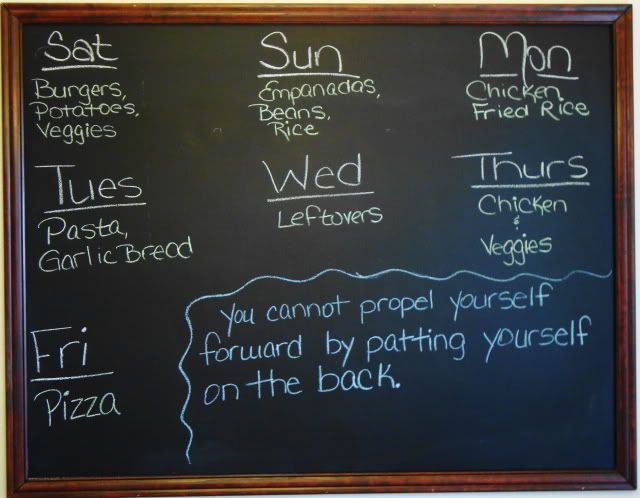 Sat
Burgers,
Potatoes,
Veggies
Sun
Empanadas,
Beans,
Rice
Mon
Chicken
Fried Rice
Tues
Pasta,
Garlic Bread
Wed
Leftovers
Thurs
Chicken
&
Veggies
Fri
Pizza
You cannot propel yourself
forward by patting yourself
on the back.